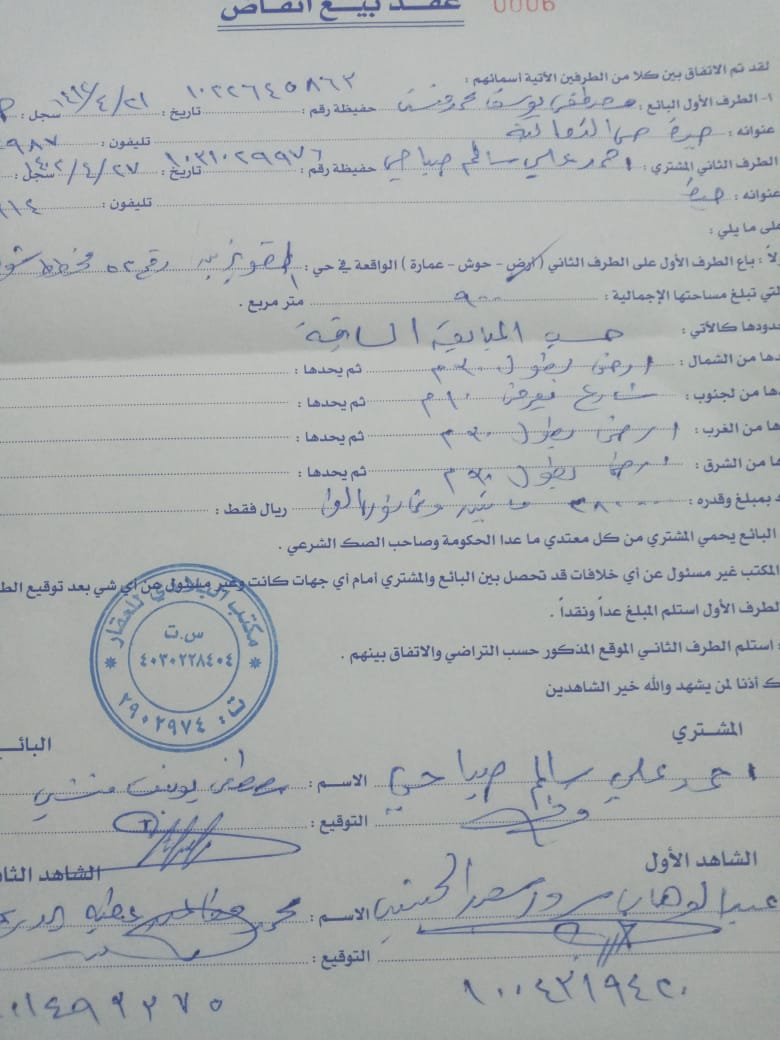 عقد بيع انقاض
0006
لقد تم الاتفاق بين كلا من الطرفين الأتية أسمائهم :
١- الطرف الأول البائع : مصطفى يوسف محمد منشي حفيظة رقم : ١٠٢٢٦٤٥٨٦٢ تاريخ : ٢١/٤/ سجل :
عنوانه : جدة حي تليفون : ٩٨٧
الطرف الثاني المشتري : احمد علي سالم صباحي حفيظة رقم : ١٠٣١٠٢٩٩٧٦ تاريخ : ٢٧/٤/ سجل :
عنوانه : جدة تليفون : ١١٤
على ما يلي :
لاً : باع الطرف الأول على الطرف الثاني ( أرض - حوش - عمارة ) الواقعة في حي : رقم ٥٢ مخطط
لتي تبلغ مساحتها الإجمالية : ٩٠٠ متر مربع .
حدودها كالأتي : حسب المبايعة السابقة
دها من الشمال : ارض بطول ٣٠ م ثم يحدها :
ها من لجنوب : شارع بعرض ١٠ م ثم يحدها :
ها من الغرب : ارض بطول ٣٠ م ثم يحدها :
ها من الشرق : ارض بطول ٣٠ م ثم يحدها :
بمبلغ وقدره : ريال فقط :
البائع يحمي المشتري من كل معتدي ما عدا الحكومة وصاحب الصك الشرعي .
المكتب غير مسئول عن أي خلافات قد تحصل بين البائع والمشتري أمام أي جهات كانت وغير مسئول عن أي شي بعد توقيع الط
لطرف الأول استلم المبلغ عداً ونقداً .
: استلم الطرف الثاني الموقع المذكور حسب التراضي والاتفاق بينهم .
ك أذنا لمن يشهد والله خير الشاهدين
مكتب للعقار
س.ت
٤٠٣٠٢٢٨٤٠٤
ت: ٢٩٠٢٩٧٤
المشتري البائـ
احمد علي سالم صباحي الاسم : مصطفى يوسف منشي
التوقيع :
الشاهد الأول الشاهد الثا
عبدالوهاب سرور سعد الاسم : محمد عطيه
التوقيع :
١٠٠٤٣١٩٤٢٠ ٠١٤٩٢٢٧٥